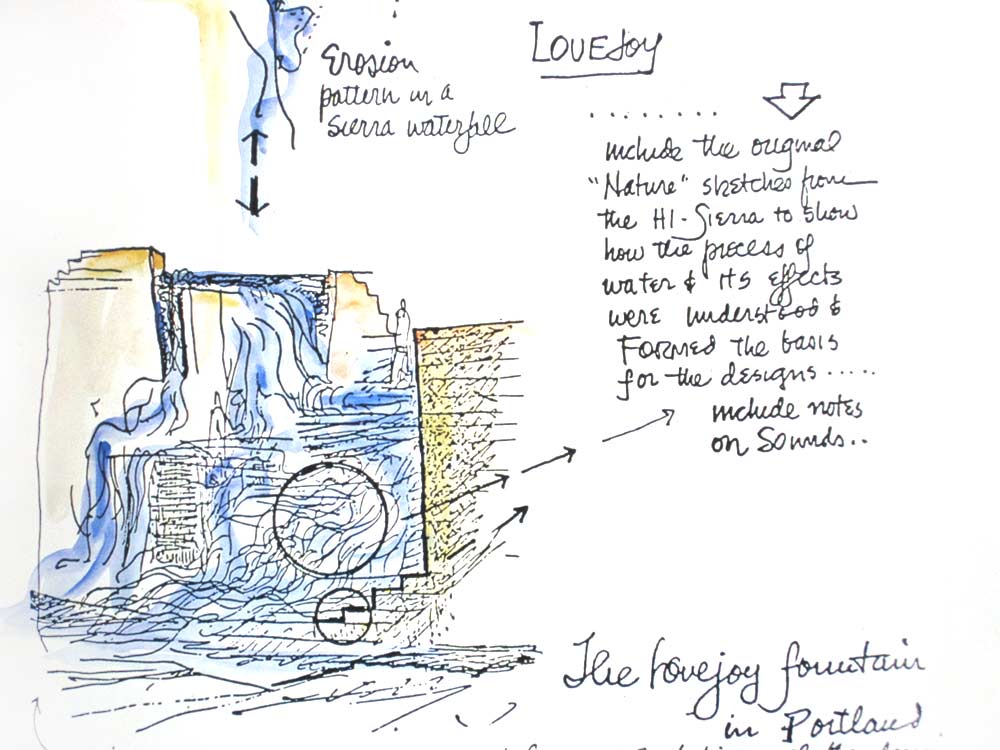 Erosion
pattern in a
Sierra waterfall
LOVEJOY
........
include the original
"Nature" sketches from
the HI-Sierra to show
how the process of
water & ITS effects
were understood &
FORMED the basis
for the designs.....
include notes
on Sounds..
The Lovejoy fountain
in Portland